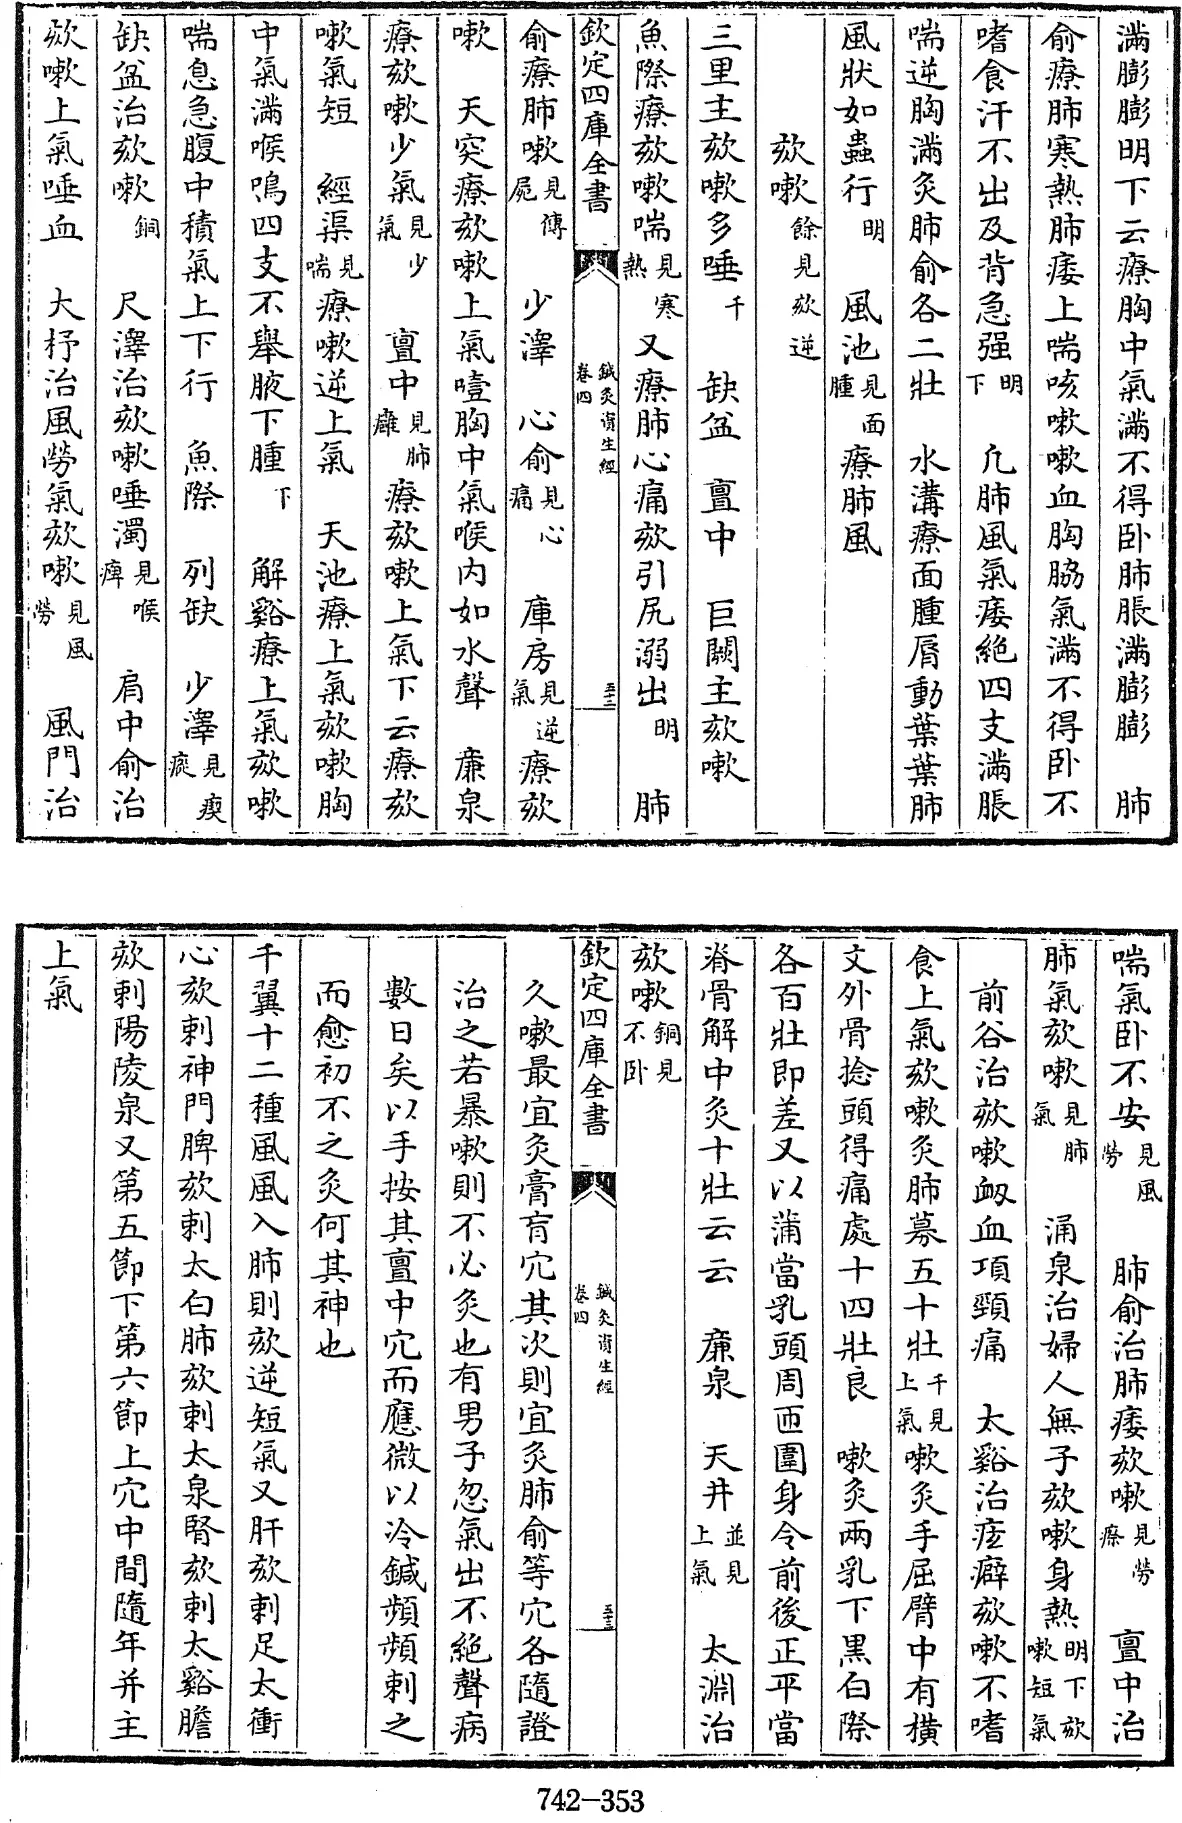 滿膨膨明下云療胸中氣滿不得卧肺脹滿膨膨　肺
俞療肺寒熱肺痿上喘咳嗽嗽血胸脇氣滿不得卧不
嗜食汗不出及背急强明下　凢肺風氣痿絶四支滿脹
喘逆胸滿灸肺俞各二壯　水溝療面腫脣動葉葉肺
風狀如蟲行明　風池見面腫療肺風
欬嗽餘見欬逆
三里主欬嗽多唾千　缺盆　亶中　巨闕主欬嗽
魚際療欬嗽喘見寒熱又療肺心痛欬引尻溺出明　肺
欽定四庫全書　鍼灸資生經卷四　五十二
俞療肺嗽見傳屍　少澤　心俞見心痛　庫房見逆氣療欬
嗽　天突療欬嗽上氣噎胸中氣喉内如水聲　亷泉
療欬嗽少氣見少氣　亶中見肺癰療欬嗽上氣下云療欬
嗽氣短　經渠見喘療嗽逆上氣　天池療上氣欬嗽胸
中氣滿喉鳴四支不舉腋下腫下　解谿療上氣欬嗽
喘息急腹中積氣上下行　魚際　列缺　少澤見瘈瘲
缺盆治欬嗽銅　尺澤治欬嗽唾濁見喉痺　肩中俞治
欬嗽上氣唾血　大杼治風勞氣欬嗽見風勞　風門治
喘氣卧不安見風勞　肺俞治肺痿欬嗽見勞瘵　亶中治
肺氣欬嗽見肺氣　涌泉治婦人無子欬嗽身熱明下欬嗽短氣
前谷治欬嗽衂血項頸痛　太谿治痃癖欬嗽不嗜
食上氣欬嗽灸肺募五十壯千見上氣嗽灸手屈臂中有横
文外骨捻頭得痛處十四壯良　嗽灸兩乳下黒白際
各百壯即差又以蒲當乳頭周匝圍身令前後正平當
脊骨解中灸十壯云云　亷泉　天井並見上氣　太淵治
欬嗽銅見不卧
欽定四庫全書　鍼灸資生經卷四　五十三
久嗽最宜灸膏肓穴其次則宜灸肺俞等穴各隨證
治之若暴嗽則不必灸也有男子忽氣出不絶聲病
數日矣以手按其亶中穴而應微以冷鍼頻頻刺之
而愈初不之灸何其神也
千翼十二種風風入肺則欬逆短氣又肝欬刺足太衝
心欬刺神門脾欬刺太白肺欬刺太泉腎欬刺太谿膽
欬刺陽陵泉又第五節下第六節上穴中間隨年并主
上氣
742-353